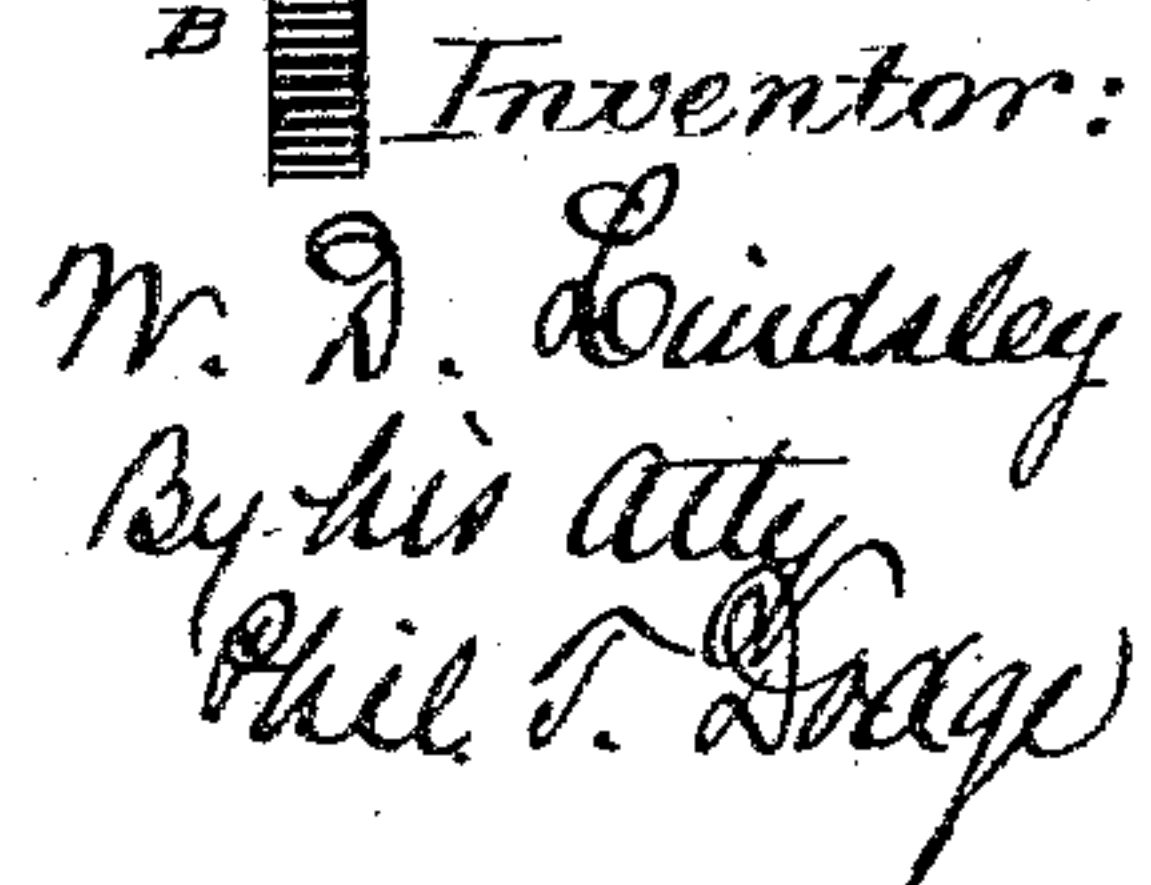 B
Inventor:
W. D. Lindsley
By his Atty
Phil. T. Dodge